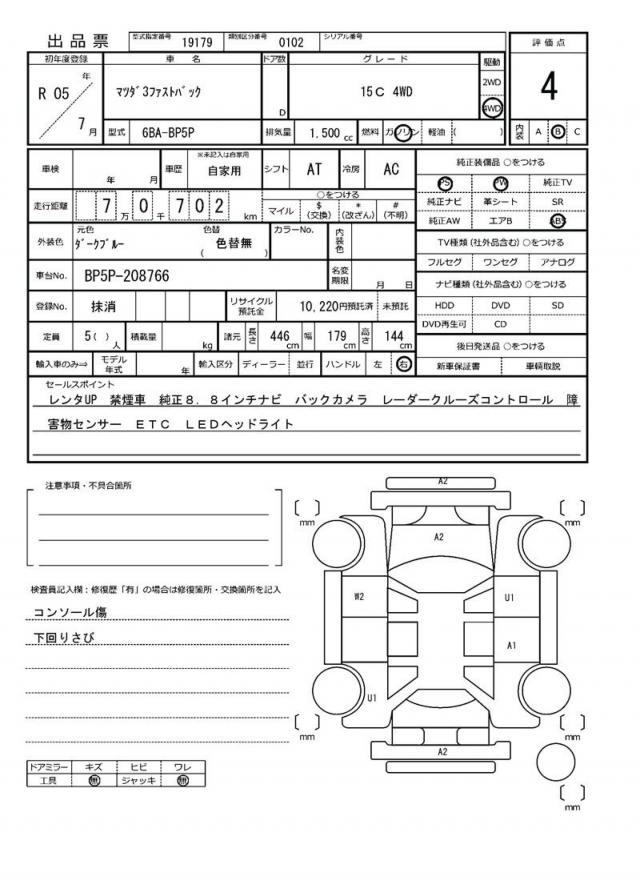 出品票 型式指定番号 19179 類別区分番号 0102 シリアル番号
初年度登録 車名 ドア数 グレード 駆動 評価点
R 05 年 7 月 マツダ3ファストバック D 15C 4WD 2WD 4WD 4
型式 6BA-BP5P 排気量 1,500 cc 燃料 ガソリン 軽油 ( ) 内装 A B C
車検 年 月 車歴 ※未記入は自家用 自家用 シフト AT 冷房 AC 純正装備品 ○をつける
PS PW 純正TV
走行距離 7 万 0 千 7 0 2 km ○をつける マイル $ (交換) * (改ざん) # (不明) 純正ナビ 革シート SR
純正AW エアB ABS
外装色 元色 ダークブルー 色替 ( 色替無 ) カラーNo. 内装色 TV種類 (社外品含む) ○をつける
フルセグ ワンセグ アナログ
車台No. BP5P-208766 名変期限 月 日 ナビ種類 (社外品含む) ○をつける
登録No. 抹消 リサイクル預託金 10,220円預託済 未預託 HDD DVD SD
DVD再生可 CD
定員 5( ) 人 積載量 kg 諸元 長さ 446 cm 幅 179 cm 高さ 144 cm 後日発送品 ○をつける
輸入車のみ⇒ モデル年式 年 輸入区分 ディーラー 並行 ハンドル 左 右 新車保証書 車輌取説
セールスポイント
レンタUP 禁煙車 純正8.8インチナビ バックカメラ レーダークルーズコントロール 障
害物センサー ETC LEDヘッドライト
注意事項・不具合箇所
検査員記入欄：修復歴「有」の場合は修復箇所・交換箇所を記入
コンソール傷
下回りさび
ドアミラー キズ ヒビ ワレ
工具 無 ジャッキ 無
A2
mm mm
A2
W2 U1
A1
U1
mm mm
A2
mm